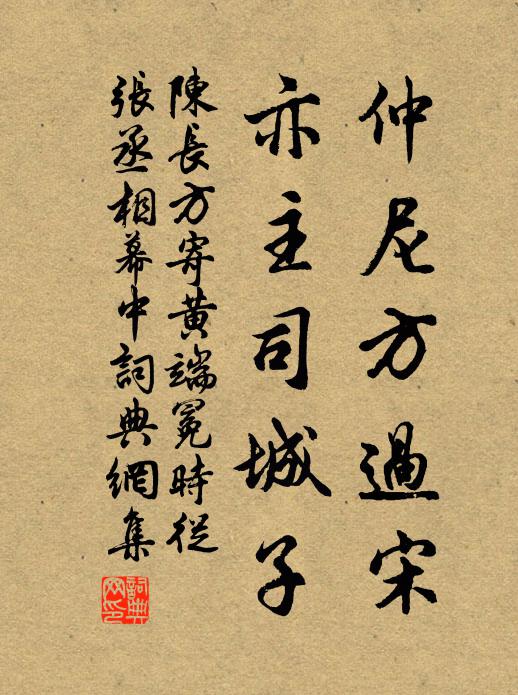 仲尼方過宋
亦主司城子
陳長方寄黃端冕時從
張丞相幕中詞典網集
詞典網印